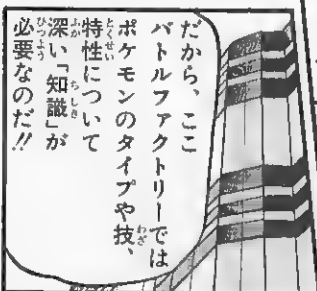 だから、ここ
バトルファクトリーでは
ポケモンのタイプや技、
特性について
深い「知識」が
必要なのだ!!